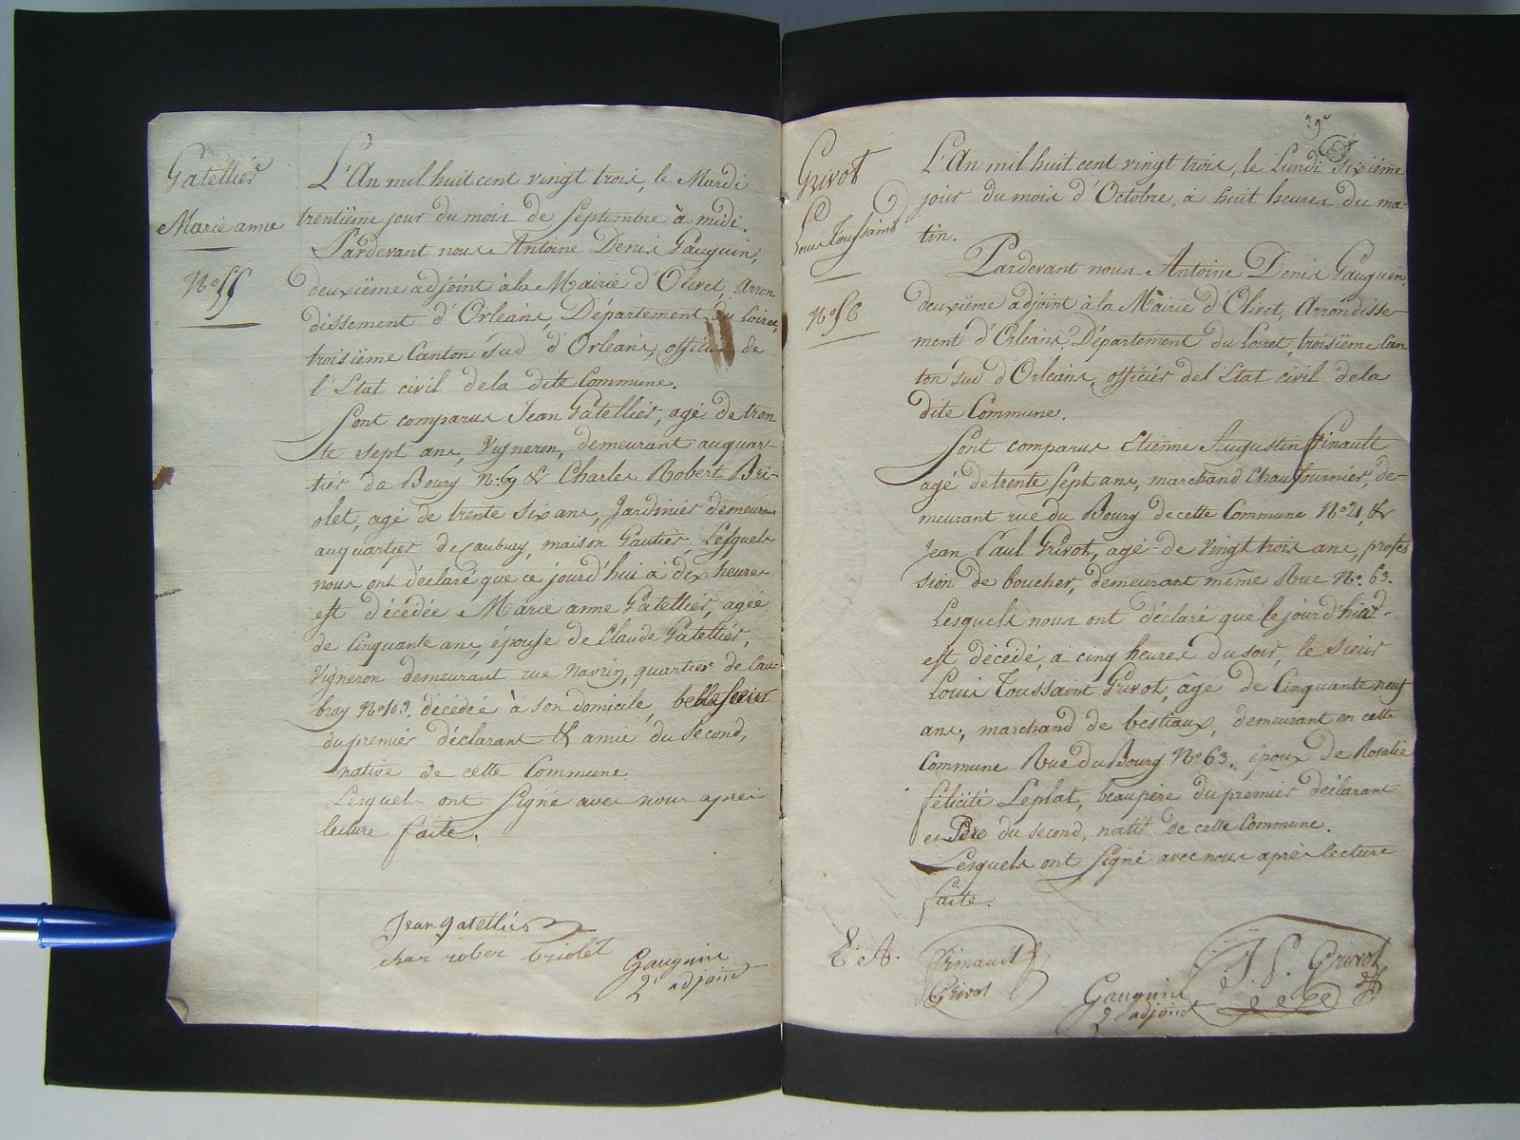 Gatellier
Marie anne
N° 55
L'An mil huit cent vingt trois, le Mardi
trentième jour du mois de Septembre à midi.
Pardevant nous Antoine Denis Gauguin,
deuxième adjoint à la Mairie d'Olivet, Arron
dissement d'Orléans, Département du Loiret,
troisième Canton sud d'Orleans, officier de
l'Etat civil de la dite Commune.
Sont comparus Jean Gatellier, agé de tren
te sept ans, Vigneron, demeurant au quar-
tier du Bourg N° 69 & Charles Robert Bri-
olet, agé de trente six ans, Jardinier demeurant
au quartier de Caubray, maison Gautier, Lesquels
nous ont déclaré que ce jourd'hui à dix heures
est décédée Marie anne Gatellier, agée
de Cinquante ans, épouse de Claude Gatellier,
Vigneron demeurant rue quartier de Cau-
bray N° 103. décédée à son domicile, belle Sœur
du premier déclarant & amie du Second,
native de cette Commune
Lesquels ont signé avec nous après
lecture faite.
Jean gatellier
char rober briolet
Gauguin
2e adjoint
39e
Grivot
Louis Toussaint
N° 56
L'An mil huit cent vingt trois, le Lundi Sixième
jour du mois d'Octobre, à huit heures du ma-
tin.
Pardevant nous Antoine Denis Gauguin,
deuxième adjoint à la Mairie d'Olivet, Arrondisse-
ment d'Orléans, Département du Loiret, troisième Can
ton sud d'Orléans, officier de l'Etat civil de la
dite Commune.
Sont comparus Etienne Augustin Pinault
agé de trente Sept ans, marchand Chaufournier, de-
meurant rue du Bourg de cette Commune N° 21, &
Jean Paul Grivot, agé de vingt trois ans, profes
sion de boucher, demeurant même Rue N° 63.
Lesquels nous ont déclaré que le jour d'hier
est décédé, à cinq heures du soir, le sieur
Louis Toussaint Grivot, âgé de Cinquante neuf
ans, marchand de bestiaux, demeurant en cette
Commune Rue du Bourg N° 63. époux de Rosalie
félicité Leplat, beaupère du premier déclarant
et Père du second, natif de cette Commune.
Lesquels ont signé avec nous après lecture
faite.
E. A. Pinault
Grivot
Gauguin
2e adjoint
J. P. Grivot